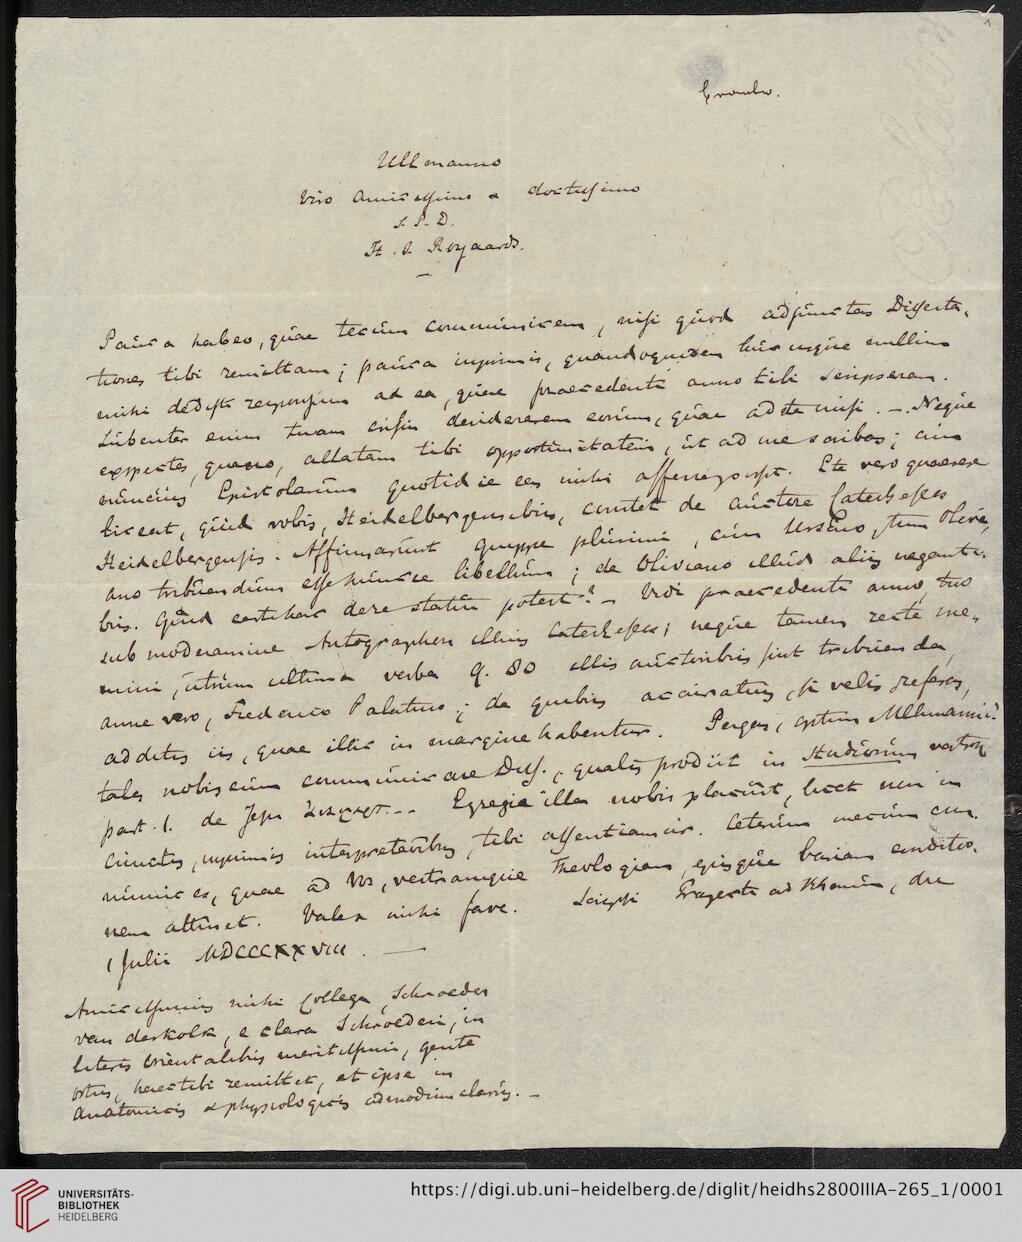 Ullmanno
Viro Amicissimo & doctissimo
S. P. D.
H. J. Royaards.
Pauca habeo, quae tecum communicem, nisi quod adjunctas Disserta-
tiones tibi remittam; pauca inprimis, quandoquidem huc usque nullum
mihi dedisti responsum ad ea, quae praecedenti anno tibi scripseram.
Lubenter enim tuam desiderarem eorum, quae ad te misi. — Neque
exspectes, quaeso, allatam tibi opportunitatem, ut ad me scribas; cum
nuncius Epistolarum quotidie eas mihi afferre possit. Et vero quaerere
liceat, quid vobis, Heidelbergensibus, constet de auctore Catecheseos
Heidelbergensis. Affirmarunt quippe plurimi, cum Ursino, tum Olivi-
ano tribuendum esse hunce libellum; de Oliviano illud aliis neganti-
bus. Quid certi hac de re statui potest? — Vidi praecedenti anno, tuo
sub moderamine Autographon illius Catecheseos; neque tamen recte me-
mini, utrum ultima verba Q. 80 illis auctoribus sint tribuenda,
anne vero, Frederico Palatino; de quibus accuratius, si velis, referas,
additis iis, quae illic in margine habentur. Pergas, optime Ullmanne!
tales nobiscum communicare Diss., qualis prodiit in Studiorum vestror.
part. 1. de Jesu — Egregie illa nobis placuit, licet non in
cunctis, inprimis interpretationibus, tibi assentiamur. Ceterum mecum com-
munices, quae ad Vos, vestramque Theologiam, ejusque hujus conditio-
nem attinet. Vale & mihi fave. Scripsi Trajecti ad Rhenum, die
1 Julii MDCCCXXVIII. —
Amicissimus mihi Collega, Schroeder
van der Kolk, e clara Schroederi, in
literis Orientalibus meritissimi, gente
ortus, haec tibi remittet, et ipse in
Anatomicis & physiologicis admodum clarus. —
1
UNIVERSITÄTS-
BIBLIOTHEK
HEIDELBERG
https://digi.ub.uni-heidelberg.de/diglit/heidhs2800IIIA-265_1/0001